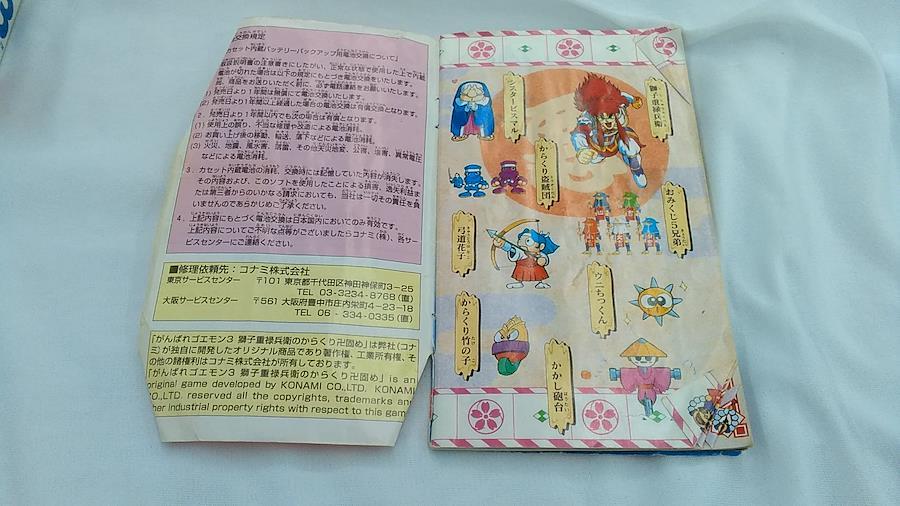 交換規定
カセット内蔵バッテリーバックアップ用電池交換について」
取扱説明書の注意書きにしたがい、正常な状態で使用した上で内蔵
電池が切れた場合は以下の規定にもとづき電池交換をいたします。
商品をお送りいただく前に、必ず電話連絡をお願いいたします。
(1) 発売日より1年間は無償にて電池交換いたします。
(2) 発売日より1年間以上経過した場合の電池交換は有償交換となります。
2. 発売日より1年間以内でも次の場合は有償となります。
(1) 使用上の誤り、不当な修理や改造による電池消耗。
(2) お買い上げ後の移動、輸送、落下などによる電池消耗。
(3) 火災、地震、風水害、落雷、その他天災地変、公害、塩害、異常電圧
などによる電池消耗。
3. カセット内蔵電池の消耗、交換時には記憶していた内容が消滅します。
その内容および、このソフトを使用したことによる損害、逸失利益ま
たは第三者からのいかなる請求においても、当社は一切その責任を負
いませんのであらかじめご了承ください。
4. 上記内容にもとづく電池交換は日本国内においてのみ有効です。
上記内容についてご不明な点等がございましたらコナミ(株)、各サー
ビスセンターにご連絡ください。
■修理依頼先:コナミ株式会社
東京サービスセンター 〒101 東京都千代田区神田神保町3-25
TEL 03-3234-8768(直)
大阪サービスセンター 〒561 大阪府豊中市庄内栄町4-23-18
TEL 06-334-0335(直)
「がんばれゴエモン3 獅子重禄兵衛のからくり卍固め」は弊社(コナ
ミ)が独自に開発したオリジナル商品であり著作権、工業所有権、そ
の他の諸権利はコナミ株式会社が所有しております。
「がんばれゴエモン3 獅子重禄兵衛のからくり卍固め」is an
original game developed by KONAMI CO.,LTD. KONAMI
CO.,LTD. reserved all the copyrights, trademarks an
her industrial property rights with respect to this gam
シスタービスマル
獅子重禄兵衛
からくり盗賊団
おみくじ5兄弟
弓道花子
ウニちっくん
からくり竹の子
かかし砲台